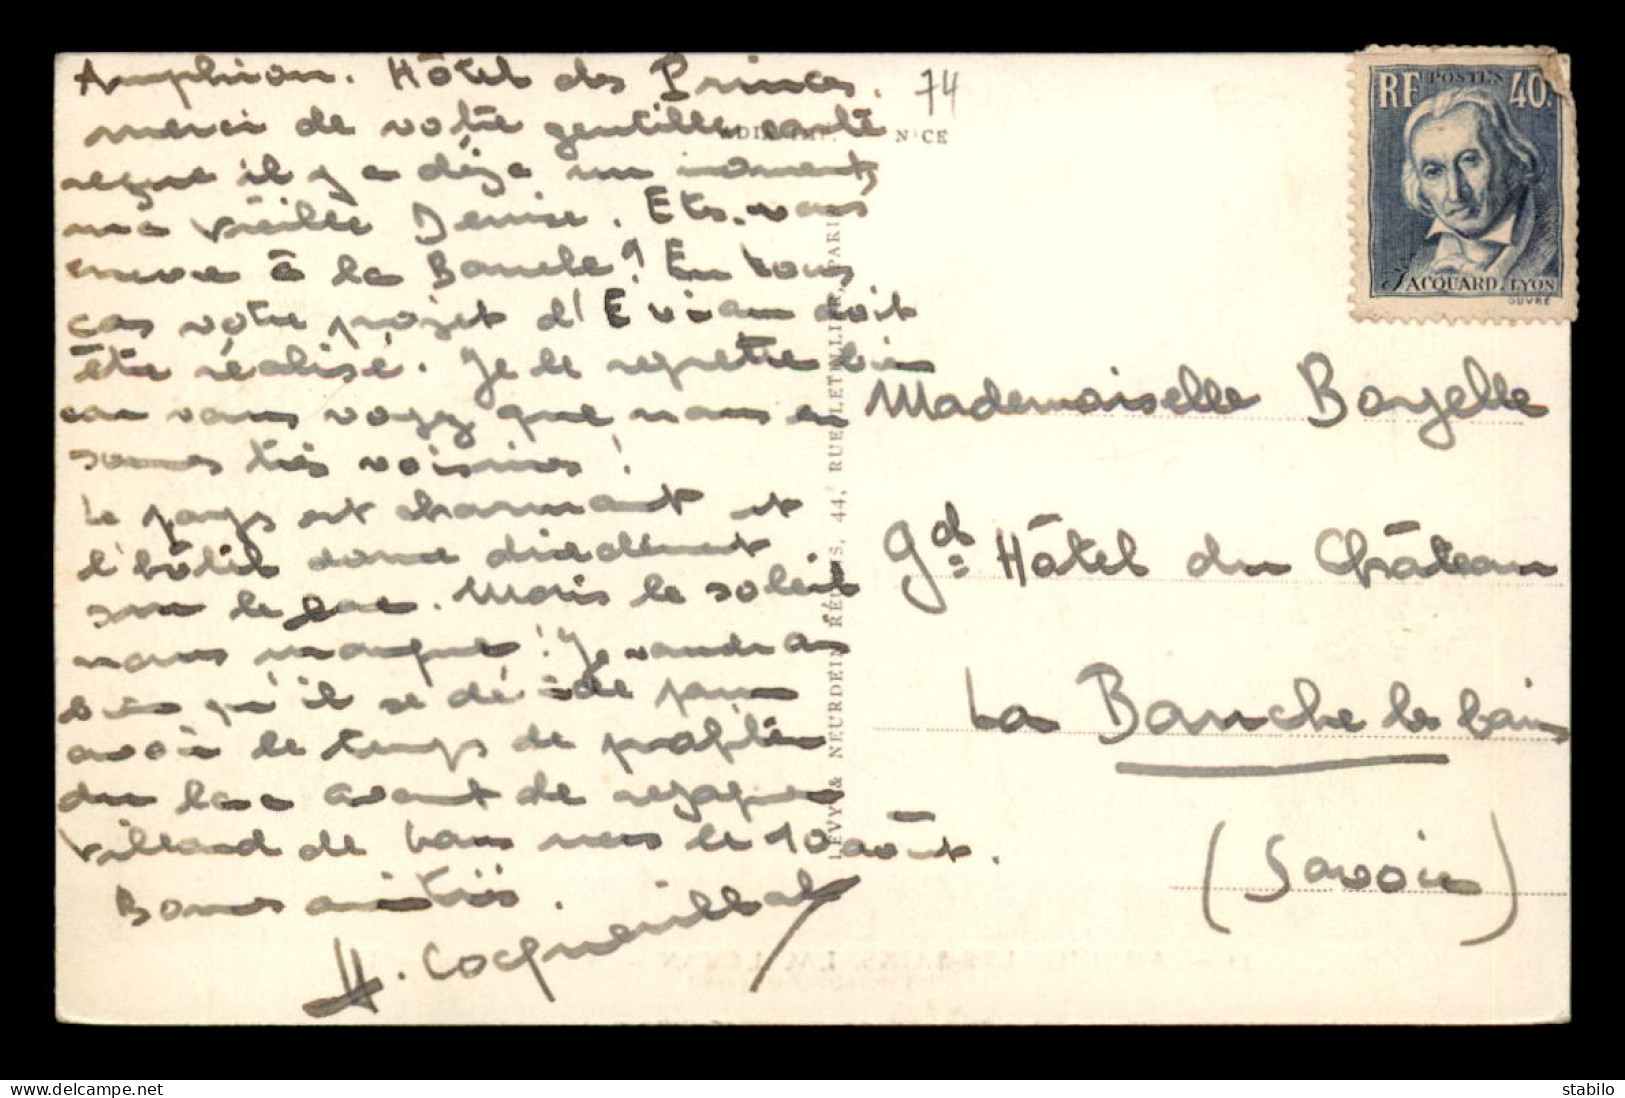 Amphion. Hôtel des Princes.
merci de votre gentille carte
reçue il y a déjà un moment,
ma vieille Denise. Etes-vous
encore à La Bauche? En tous
cas votre projet d'Evian doit
être réalisé. Je le regrette bien
car vous voyez que nous en
sommes très voisines!
Le pays est charmant et
l'hôtel donne directement
sur le lac. Mais le soleil
nous manque! Je voudrais
bien qu'il se décide pour
avoir le temps de profiter
du lac avant de regagner
Villard de Lans vers le 10 août.
Bonnes amitiés.
H. Cocquenilhat
74
NICE
LEVY & NEURDEIN RÉUNIS, 44, RUE LETELLIER, PARIS
RF POSTES 40c
JACQUARD. LYON
OUVRÉ
Mademoiselle Bayelle
Gd Hôtel du Château
La Bauche les bains
(Savoie)